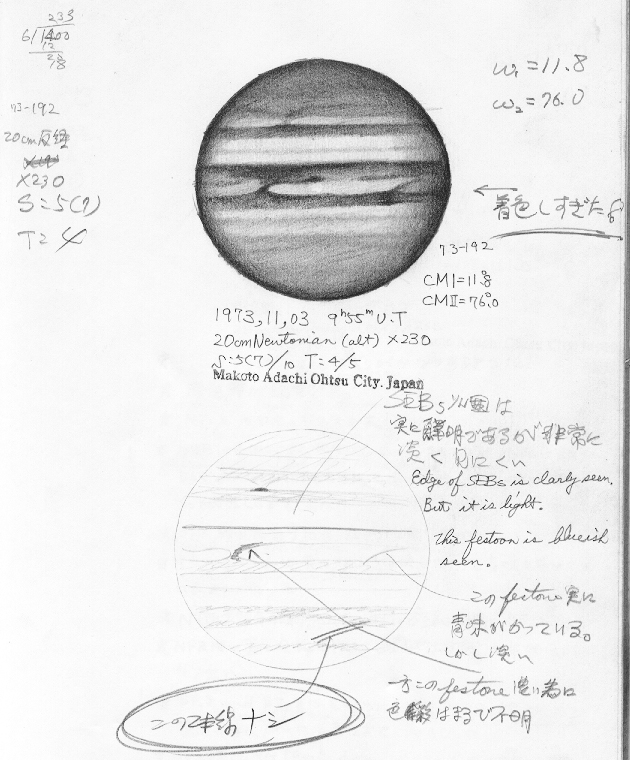 233
6/1400
12
73-192
20cm反射
×230
S=5(7)
T=4
ω₁=11.8
ω₂=76.0
←着色しすぎた。
73-192
CMI=11.8°
CMII=76.0°
1973,11,03 9h55m U.T
20cm Newtonian (alt) ×230
S:5(7)/10 T=4/5
Makoto Adachi Ohtsu City. Japan
は
実に鮮明であるが非常に
淡く見にくい
Edge of SEBs is clarly seen.
But it is light.
This festoon is blueish
seen.
このfestone実に
青味がかっている。
しかし淡い
一方このfestone淡い為に
色彩はまるで不明
この2本線ナシ